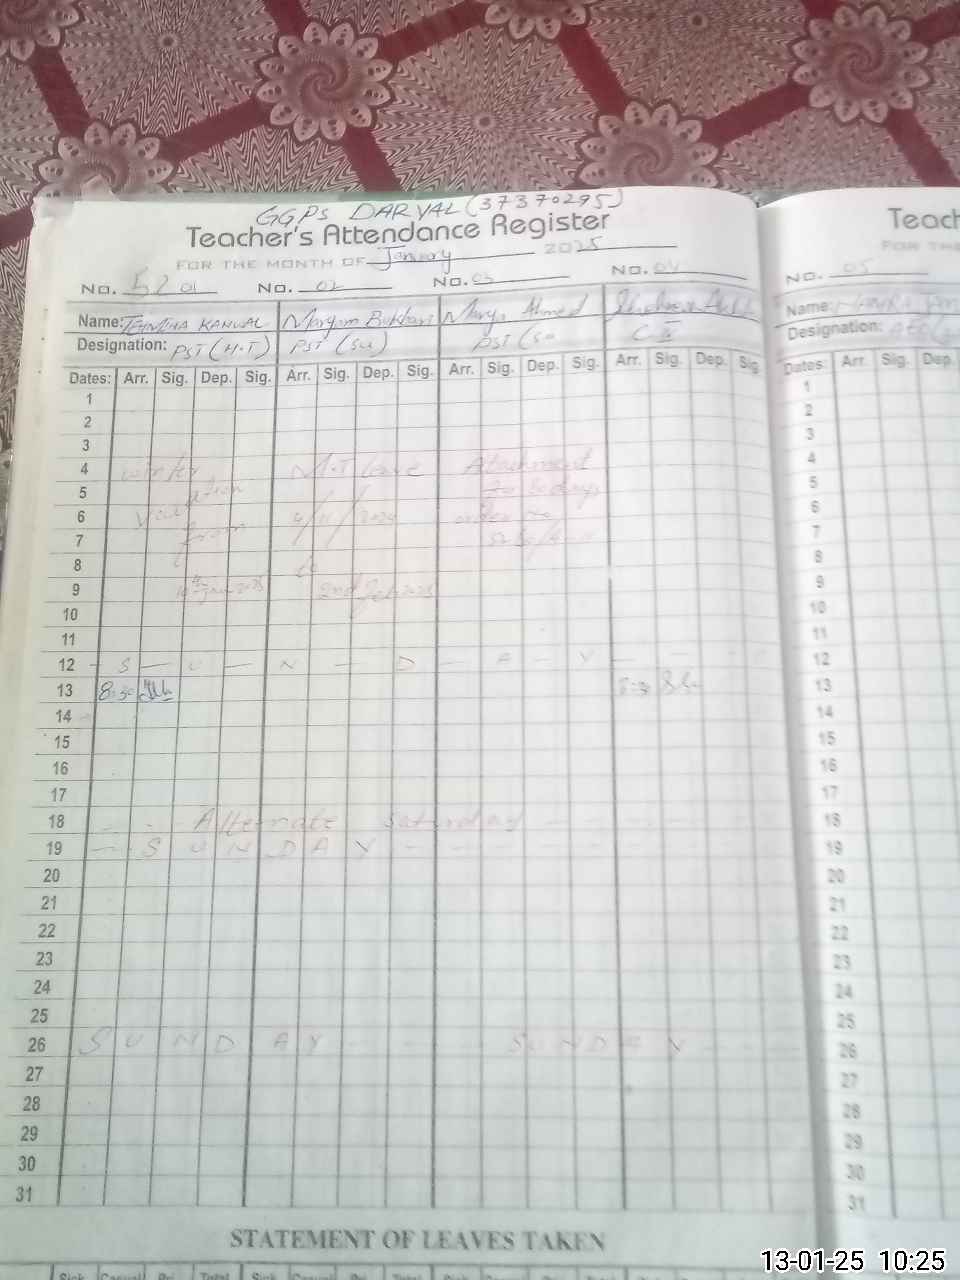 GGPS DARYAL (37370295)
Teacher's Attendance Register
FOR THE MONTH OF January 2025
No. 01 No. 02 No. 03 No. 04
Name: TEHMINA KANUAL Maryam Bukhari Ahmed
Designation: PST (H.T) PST (SU) PST (SU
Dates: Arr. Sig. Dep. Sig. Arr. Sig. Dep. Sig. Arr. Sig. Dep. Sig. Arr. Sig. Dep. Sig.
1
2
3
4 winter M.T leave Atachment
5 Vacation for 60 days
6 from 4/11/2024 order no
7
8 to
9 2nd Feb 2025
10
11
12 - S - U - N - D - A - Y -
13 8:30
14
15
16
17
18 Alternate Saturday
19 - S U N D A Y -
20
21
22
23
24
25
26 S U N D A Y - - - S U N D A Y
27
28
29
30
31
STATEMENT OF LEAVES TAKEN
Sick Casual Total Sick Casual Total
Teach
FOR THE
No. 05
Name:
Designation:
Dates: Arr. Sig. Dep.
1
2
3
4
5
6
7
8
9
10
11
12
13
14
15
16
17
18
19
20
21
22
23
24
25
26
27
28
29
30
31
13-01-25 10:25